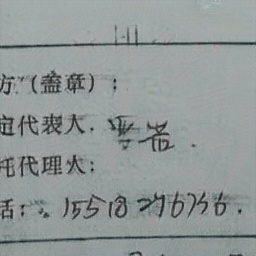 方（盖章）：
定代表人.
托代理人：
话：. 15518276756.